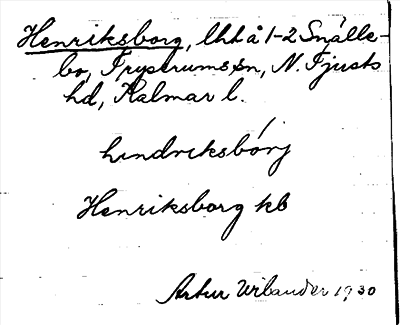 Henriksborg, lht å 1-2 Snälle-
bo, Tryserums sn, N. Tjusts
hd, Kalmar l.
hindriksbórj
Henriksborg kb
Artur Wilander 1930